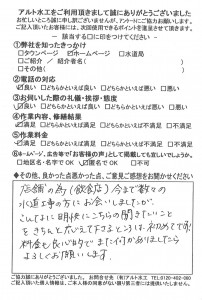 アルト水工をご利用頂きまして誠にありがとうございました
お忙しいところ誠に申し訳ございませんが、アンケートにご協力お願いします。
ご記入頂いたお客様には、次回使用できるポイントを進呈させて頂きます。
― 該当する□に印をつけてください ―
①弊社を知ったきっかけ
□タウンページ ☑ホームページ □水道局
□ご紹介 / ご紹介者名( )
□その他( )
②電話の対応
☑良い □どちらかといえば良い □どちらかといえば悪い □悪い
③お伺いした際の礼儀・挨拶・態度
☑良い □どちらかといえば良い □どちらかといえば悪い □悪い
④作業内容、修繕結果
☑満足 □どちらかといえば満足 □どちらかといえば不満足 □不満足
⑤作業料金
☑満足 □どちらかといえば満足 □どちらかといえば不満足 □不満足
⑥ホームページ、広告等で「お客様の声」として掲載しても宜しいでしょうか。
□地区名・名字で OK ☑匿名で OK □不可
◆その他、良かった点悪かった点、ご意見ご感想をお聞かせください
店舗の為(飲食店)今まで数々の
水道工事の方にお会いしましたが、
ここまでに明快にこちらの聞きたいこと
をきちんと
料金と良心的でまた何かありましたら
よろしくお願いします。
ご協力誠にありがとうございました。 お問合せ先 (有)アルト水工 TEL.0120-402-060
ご記入頂いた個人情報は、ご本人様の同意がない限り第三者には提供いたしません。